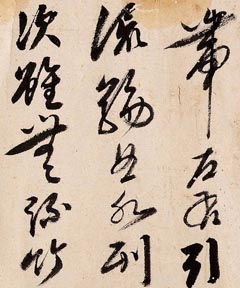 帶左右引
流觴曲水列
次雖無絲竹